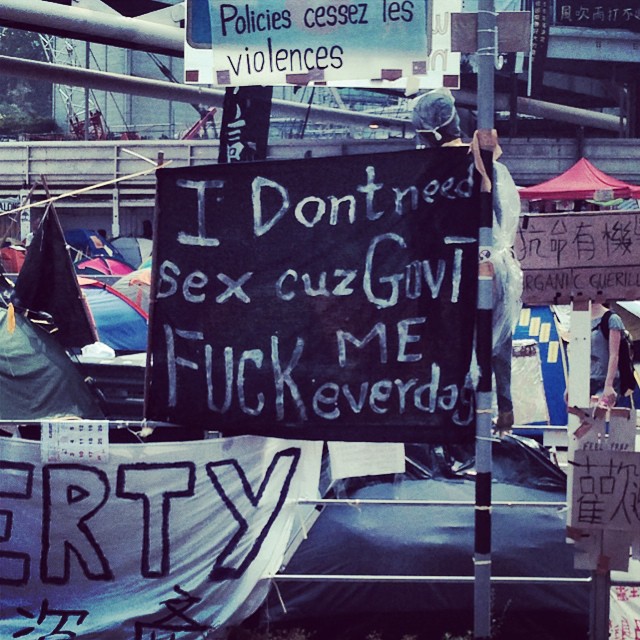 Policies cessez les
violences
I Dont need
sex cuz GovT
FUCK ME
everday
抗命有機
ORGANIC GUERIL
ERTY
歡